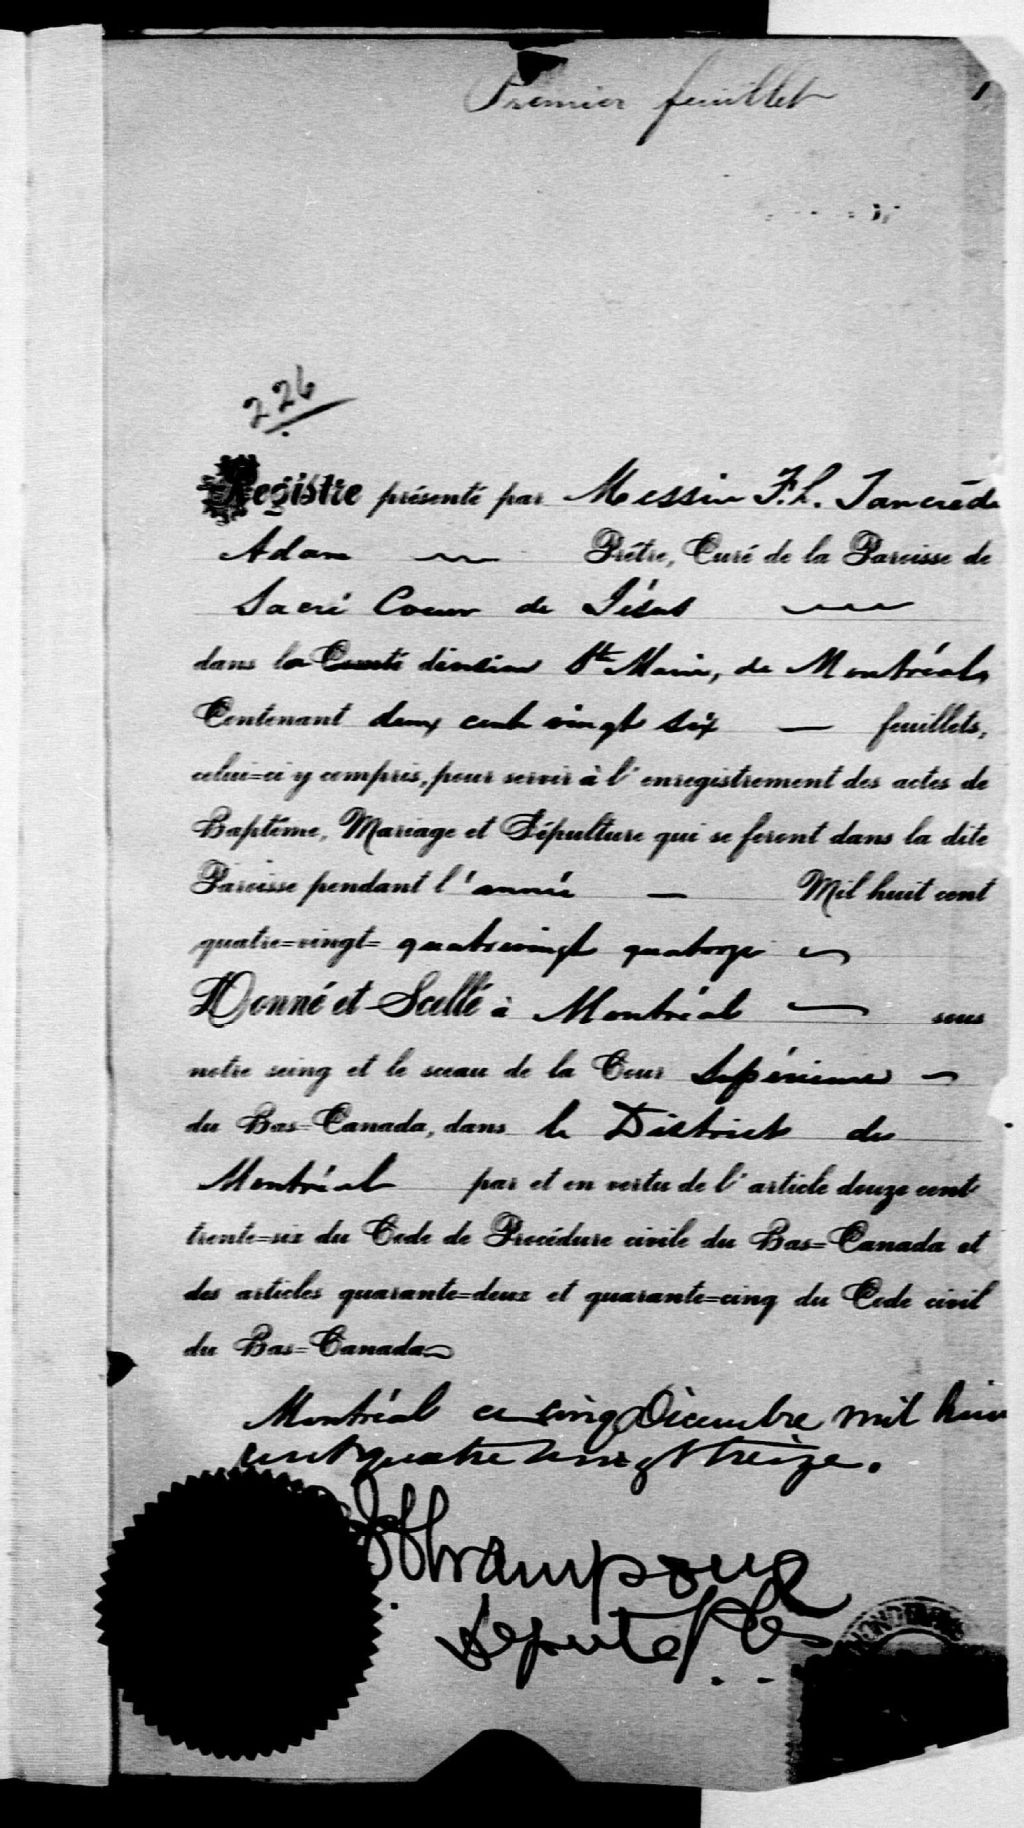 Premier feuillet
226
Registre présenté par Messire F. L. Tancrède
Adam Prêtre, Curé de la Paroisse de
Sacré Coeur de Jésus
dans la Comté division Ste Marie, de Montréal,
Contenant deux cent vingt six — feuillets,
celui=ci y compris, pour servir à l'enregistrement des actes de
Baptême, Mariage et Sépulture qui se feront dans la dite
Paroisse pendant l'année — Mil huit cent
quatre=vingt= quatrevingt quatorze
Donné et Scellé à Montréal — sous
notre seing et le sceau de la Cour Supérieure —
du Bas=Canada, dans le District de
Montréal par et en vertu de l'article douze cent
trente=six du Code de Procédure civile du Bas=Canada et
des articles quarante=deux et quarante=cinq du Code civil
du Bas=Canada
Montréal ce cinq Décembre mil huit
cent quatre vingt treize.
Député P.